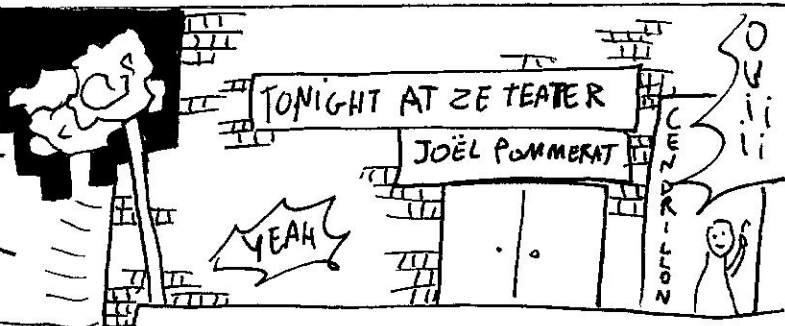 TONIGHT AT ZE TEATER
JOËL POMMERAT
YEAH
CENDRILLON
OUiiii